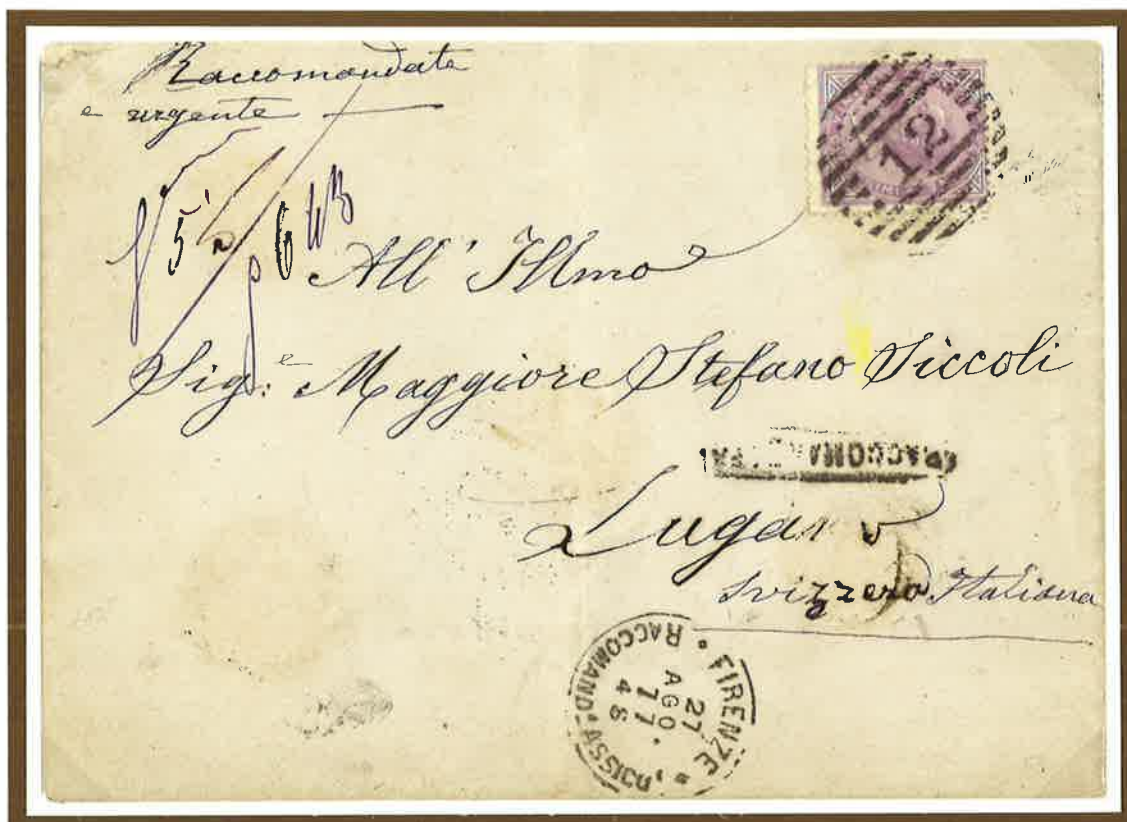 Raccomandata
e urgente
12
All' Illmo
Sig:e Maggiore Stefano Siccoli
RACCOMANDATA
Lugano
Svizzera Italiana
FIRENZE
RACCOMANDE ASSICU
27
AGO
77
4 S